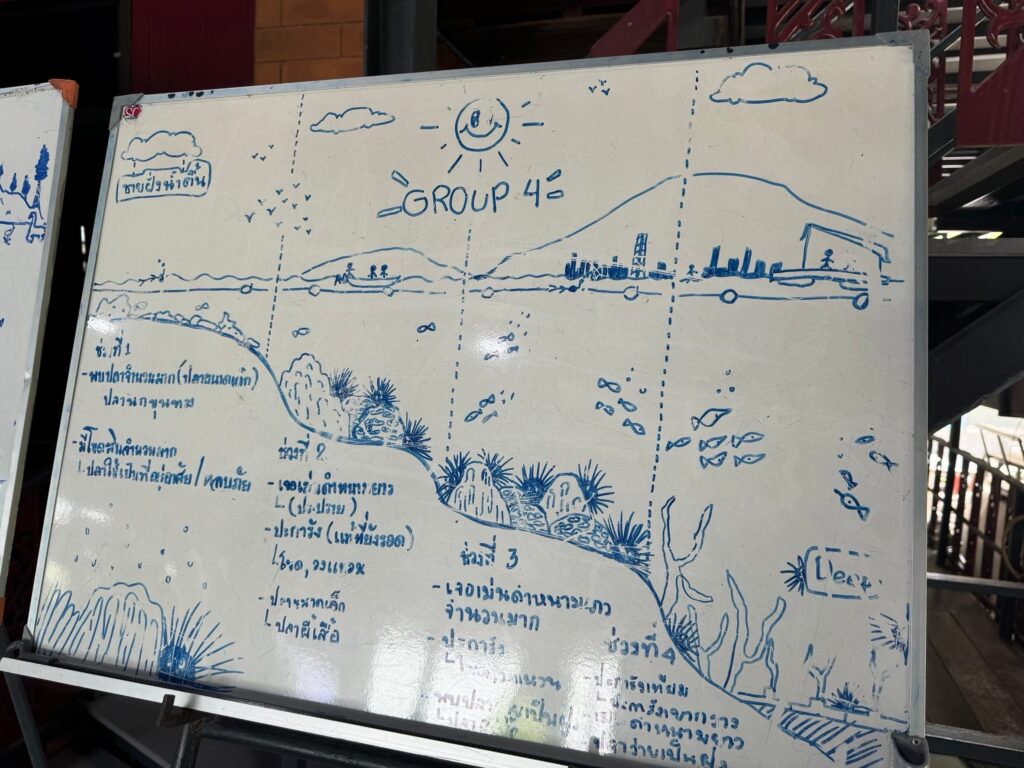 ชายฝั่งน้ำตื้น
GROUP 4
ช่วงที่ 1
- พบปลาจำนวนมาก (ปลาขนาดเล็ก)
ปลานกขุนทอง
- มีโขดหินจำนวนมาก
↳ ปลาใช้เป็นที่อยู่อาศัย / หลบภัย
ช่วงที่ 2
- เจอเม่นดำหนามยาว
↳ (ประปราย)
- ปะการัง (แท้ที่ยังรอด)
↳ โขด,
- ปลาขนาดเล็ก
↳ ปลาผีเสื้อ
ช่วงที่ 3
- เจอเม่นดำหนามยาว
จำนวนมาก
- ปะการัง
- พบปลา
ช่วงที่ 4
- ปะการังเทียม
ดำหนามยาว
เป็นฝูง